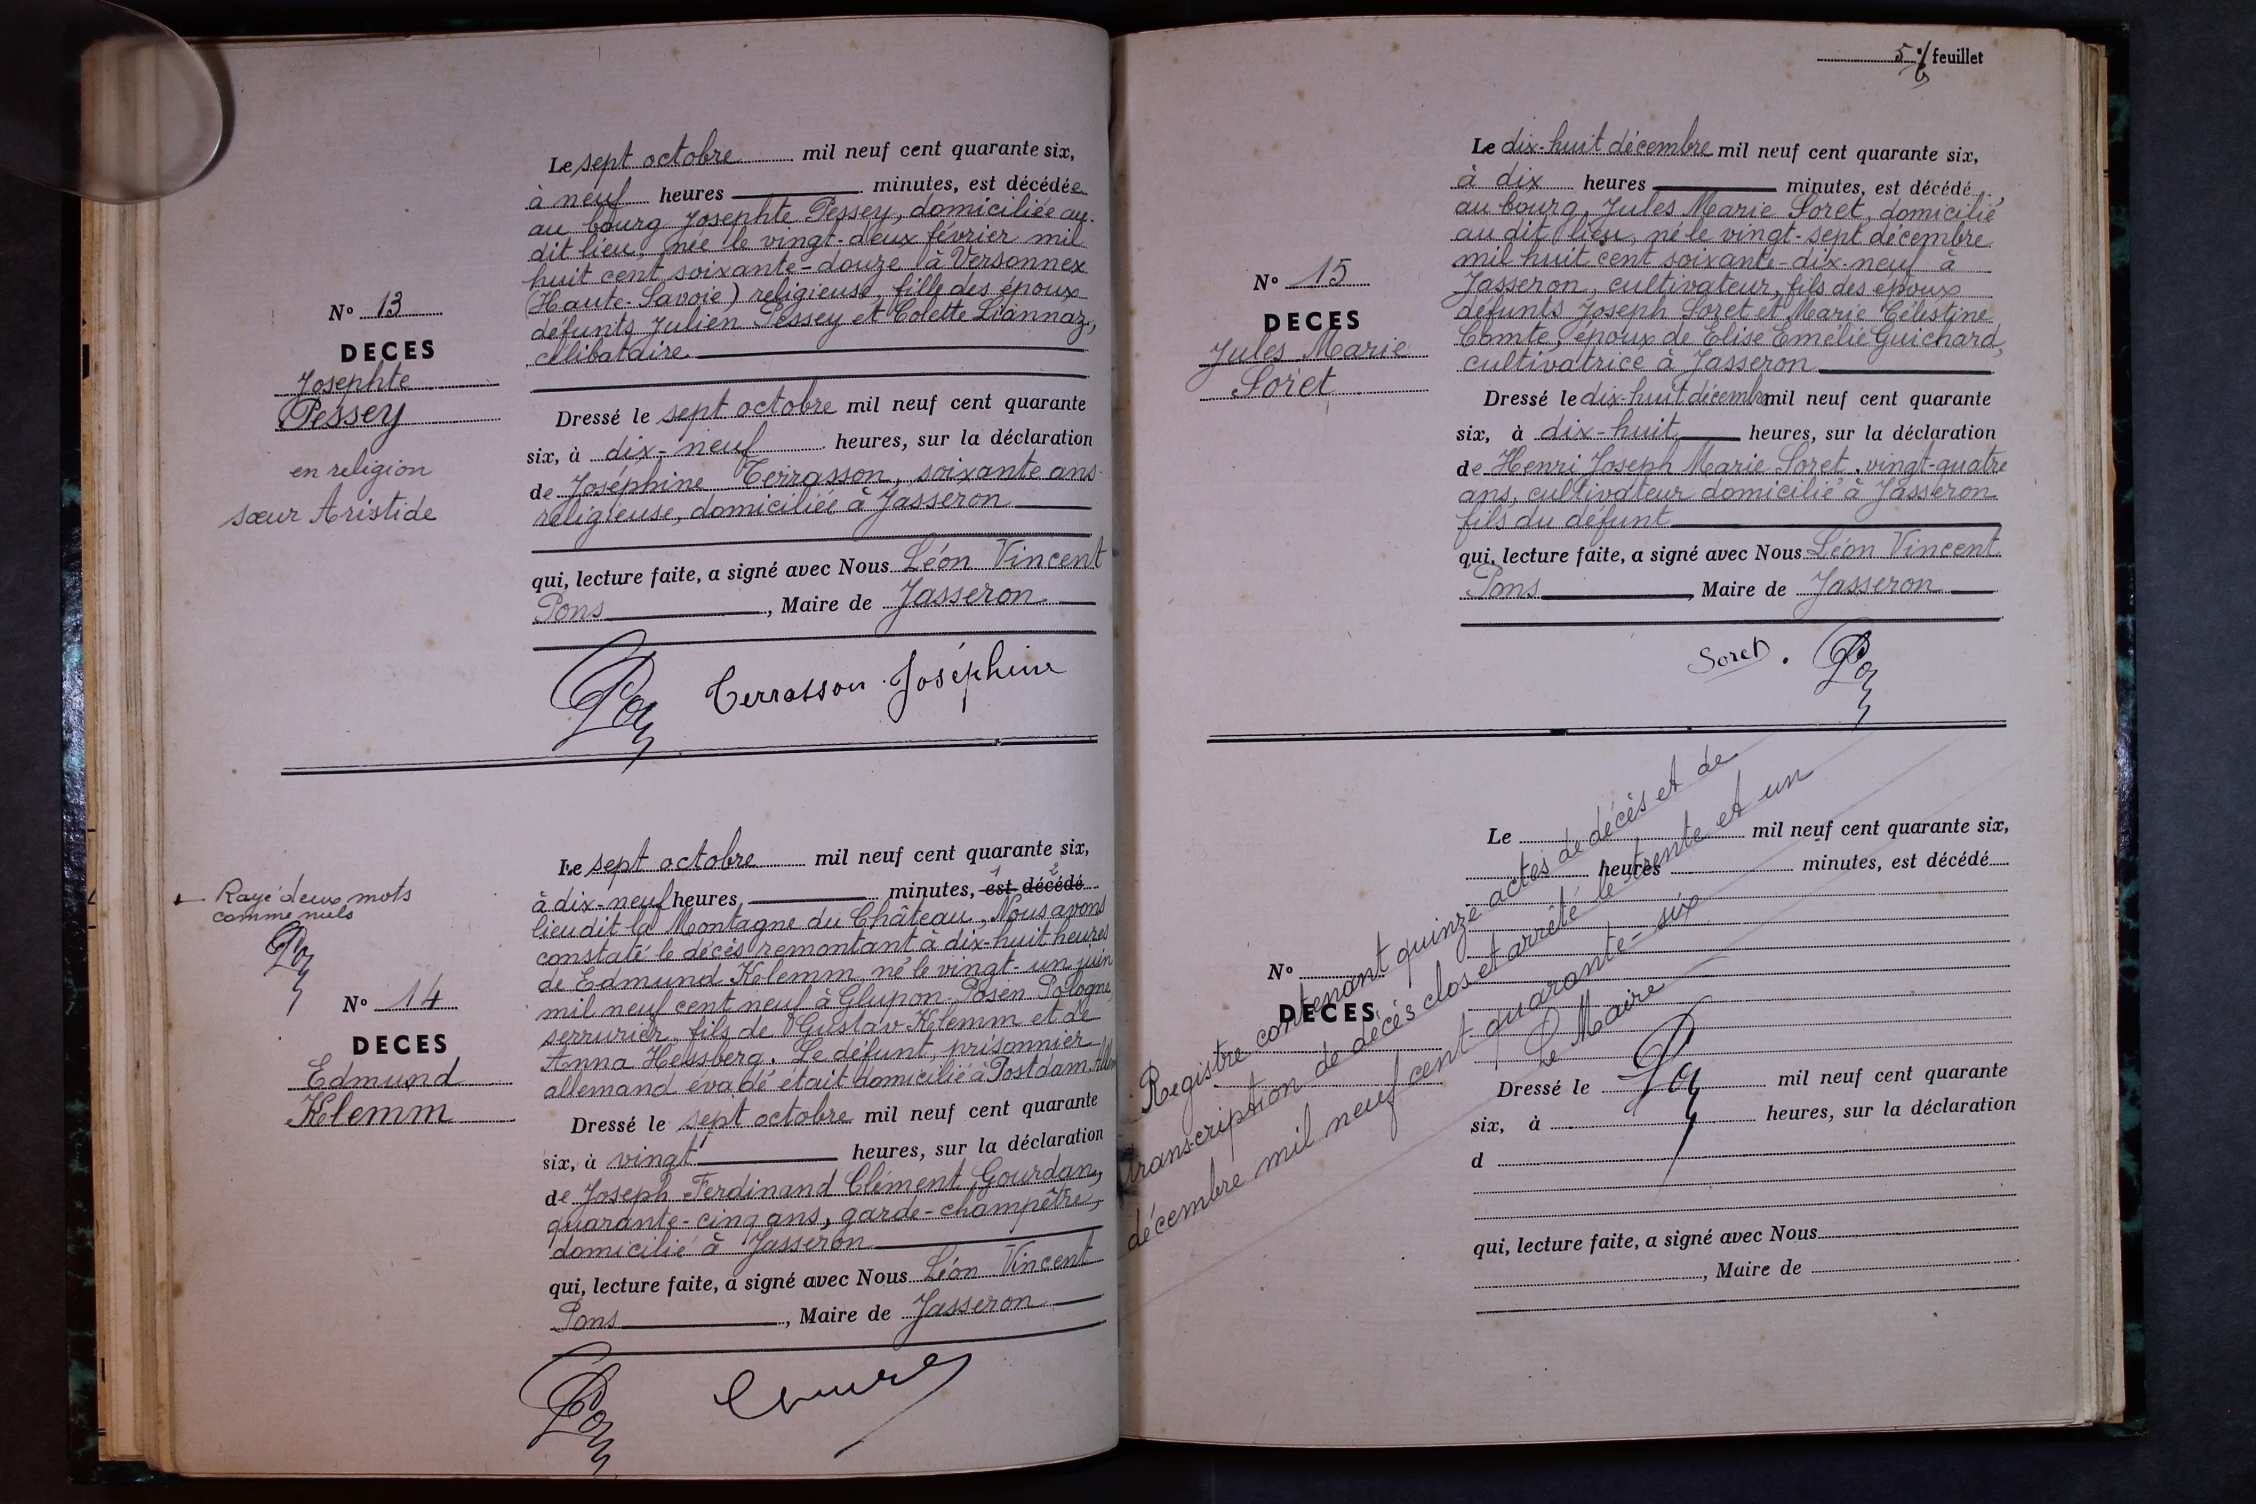 Le sept octobre mil neuf cent quarante six,
à neuf heures minutes, est décédée
au bourg Josephte Pessey, domiciliée au-
dit lieu, née le vingt-deux février mil
huit cent soixante-douze à Versonnex
(Haute-Savoie) religieuse, fille des époux
défunts Julien Pessey et Colette Liannaz,
célibataire.
N° 13
DECES
Josephte
Pessey
en religion
sœur Aristide
Dressé le sept octobre mil neuf cent quarante
six, à dix-neuf heures, sur la déclaration
de Joséphine Terrasson, soixante ans
religieuse, domiciliée à Jasseron
qui, lecture faite, a signé avec Nous Léon Vincent
Pons, Maire de Jasseron
Pons Terrasson Joséphine
Le sept octobre mil neuf cent quarante six,
à dix-neuf heures, minutes, est décédé
lieudit la Montagne du Château, Nous avons
constaté le décès remontant à dix-huit heures
de Edmund Klemm né le vingt-un juin
mil neuf cent neuf à Glupon-Posen Pologne,
serrurier, fils de Gustav Klemm et de
Anna Heusberg. Le défunt, prisonnier
allemand évadé était domicilié à Postdam
Rayé deux mots
comme nuls
N° 14
DECES
Edmund
Klemm
Dressé le sept octobre mil neuf cent quarante
six, à vingt heures, sur la déclaration
de Joseph Ferdinand Clément Gourdan,
quarante-cinq ans, garde-champêtre,
domicilié à Jasseron
qui, lecture faite, a signé avec Nous Léon Vincent
Pons, Maire de Jasseron
Pons
5 feuillet
Le dix-huit décembre mil neuf cent quarante six,
à dix heures minutes, est décédé
au bourg, Jules Marie Soret, domicilié
au dit lieu, né le vingt-sept décembre
mil huit cent soixante-dix-neuf à
Jasseron, cultivateur, fils des époux
défunts Joseph Soret et Marie Célestine
Comte, époux de Elise Emélie Guichard,
cultivatrice à Jasseron
N° 15
DECES
Jules Marie
Soret
Dressé le dix-huit décembre mil neuf cent quarante
six, à dix-huit heures, sur la déclaration
de Henri Joseph Marie Soret, vingt-quatre
ans, cultivateur domicilié à Jasseron
fils du défunt
qui, lecture faite, a signé avec Nous Léon Vincent
Pons, Maire de Jasseron
Soret. Pons
Registre contenant quinze actes de décès et de
transcription de décès clos et arrêté le trente et un
décembre mil neuf cent quarante-six
Le Maire
Pons
Le mil neuf cent quarante six,
heures minutes, est décédé
N°
DECES
Dressé le mil neuf cent quarante
six, à heures, sur la déclaration
d
qui, lecture faite, a signé avec Nous
, Maire de